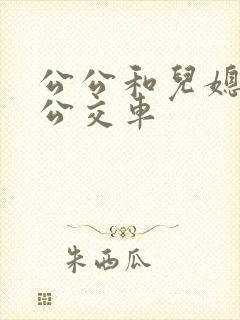 公公和兒媳
公交車
朱西瓜